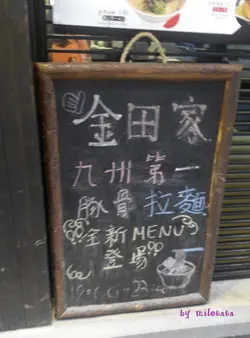 金田家
九州第一
豚骨拉麵
全新MENU
登場
by milotata